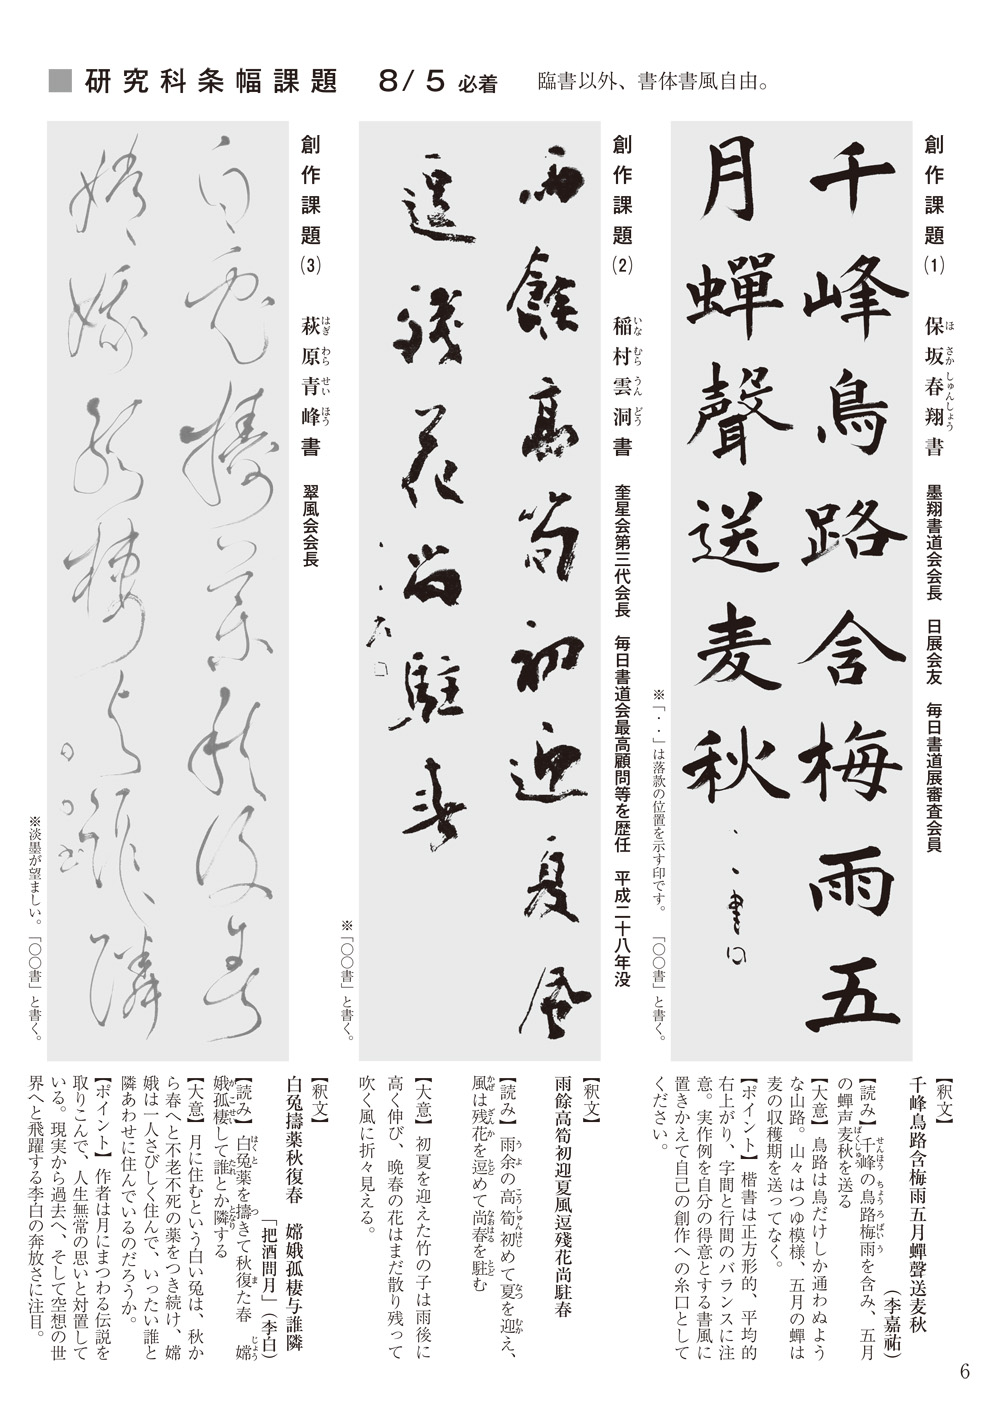 ■ 研究科条幅課題　8/5 必着　臨書以外、書体書風自由。
創作課題(1)　保坂春翔書　墨翔書道会会長　日展会友　毎日書道展審査会員
ほ さか しゅんしょう
千峰鳥路含梅雨五
月蟬聲送麦秋
、、書
※「・・」は落款の位置を示す印です。「〇〇書」と書く。
創作課題(2)　稲村雲洞書　奎星会第三代会長　毎日書道会最高顧問等を歴任　平成二十八年没
いな むら うん どう
雨餘高筍初迎夏風
逗殘花尚駐春
※「〇〇書」と書く。
創作課題(3)　萩原青峰書　翠風会会長
はぎ わら せい ほう
白兎擣薬秋復春
嫦娥孤棲与誰隣
※淡墨が望ましい。「〇〇書」と書く。
【釈文】
千峰鳥路含梅雨五月蟬聲送麦秋
（李嘉祐）
【読み】千峰の鳥路梅雨を含み、五月
せんぽう ちょうろ ばいう
の蟬声麦秋を送る
ばくしゅう
【大意】鳥路は鳥だけしか通わぬよう
な山路。山々はつゆ模様、五月の蟬は
麦の収穫期を送ってなく。
【ポイント】楷書は正方形的、平均的
右上がり、字間と行間のバランスに注
意。実作例を自分の得意とする書風に
置きかえて自己の創作への糸口として
ください。
【釈文】
雨餘高筍初迎夏風逗殘花尚駐春
【読み】雨余の高筍初めて夏を迎え、
うよ こうしゅんはじ なつ むか
風は残花を逗めて尚春を駐む
かぜ ざんか とど なおはる とど
【大意】初夏を迎えた竹の子は雨後に
高く伸び、晩春の花はまだ散り残って
吹く風に折々見える。
【釈文】
白兎擣薬秋復春　嫦娥孤棲与誰隣
「把酒問月」（李白）
【読み】白兎薬を擣きて秋復た春　嫦
はくと つ ま じょう
娥孤棲して誰とか隣する
が こせい たれ となり
【大意】月に住むという白い兎は、秋か
ら春へと不老不死の薬をつき続け、嫦
娥は一人さびしく住んで、いったい誰と
隣あわせに住んでいるのだろうか。
【ポイント】作者は月にまつわる伝説を
取りこんで、人生無常の思いと対置して
いる。現実から過去へ、そして空想の世
界へと飛躍する李白の奔放さに注目。
6